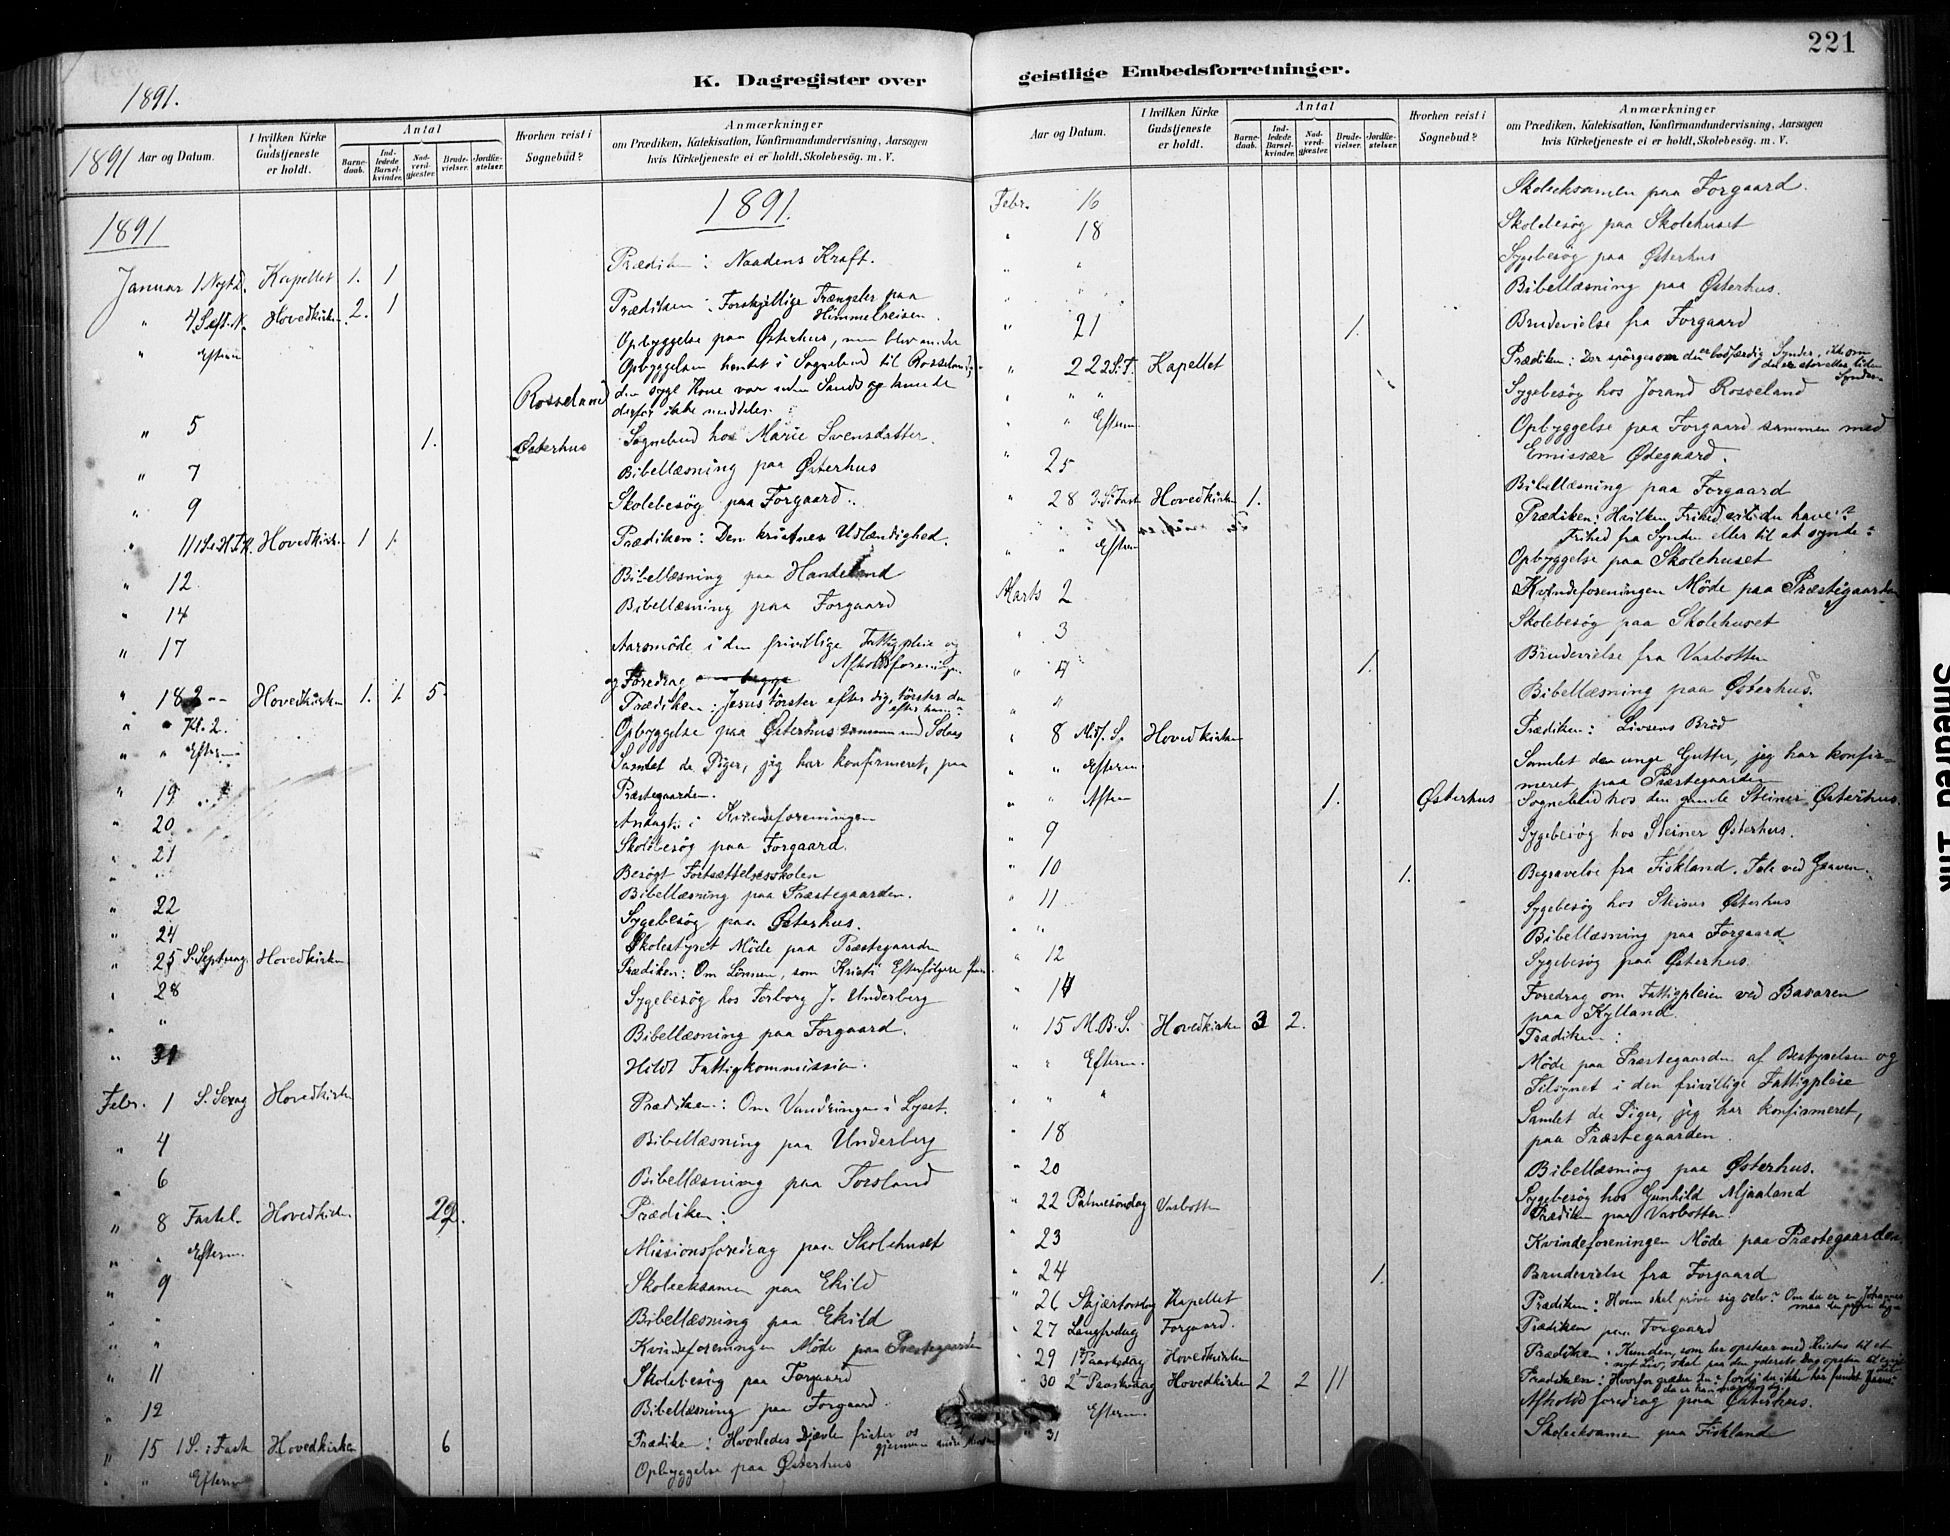 221
1891.
K. Dagregister over
1891
Aar og Datum.
I hvilken Kirke Gudstjeneste er holdt.
Antal
Barne-daab.
Ind-ledede Barsel-kvinder.
Nad-verd-gjæster.
Brude-vielser.
Jordfæ-stelser.
Hvorhen reist i Sognebud?
Anmærkninger
om Prædiken, Katekisation, Konfirmandundervisning, Aarsagen
hvis Kirketjeneste ei er holdt, Skolebesøg. m. V.
1891
1891.
Januar 1 Nytd. Kapellet 1. 1 Prædiken: Naadens Kraft.
" 4 S.eft.N. Hovedkirken 2. 1 Prædiken: Forskjellige Trængsler paa
Himmelreisen.
" Efterm Opbyggelse paa Østerhus, men blev under
Opbyggelsen hentet i Sognebud til Rosseland,
Rosseland den syge Kone var uden Sands og kunde
derfor ikke meddeles.
" 5 1. Østerhus Sognebud hos Marie Svensdatter.
" 7 Bibellæsning paa Østerhus
" 9 Skolebesøg paa Forgaard.
" 11 1 S.e.H.3.K. Hovedkirken 1 1. Prædiken: Den kristnes Udlændighed.
" 12 Bibellæsning paa Handeland
" 14 Bibellæsning paa Forgaard
" 17 Aarsmöde i den frivillige Fattigpleie og
Afholdsforeningen
og Foredrag
" 18 2 -- Hovedkirken 1. 1. 5 Prædiken: Jesus törster efter dig, törster du
efter ham?
" " Kl. 2. Opbyggelse paa Østerhus sammen med
" " Efterm Samlet de Piger, jeg har konfirmeret, paa
Præstegaarden.
" 19 Andagt i Kvindeforeningen
" 20 Skolebesøg paa Forgaard.
" 21 Besøgt Fortsættelsesskolen
Bibellæsning paa Præstegaarden.
" 22 Sygebesøg paa Østerhus.
" 24 Skolestyret Möde paa Præstegaarden
" 25 S. Septuag. Hovedkirken Prædiken: Om Lönnen, som Kristi Efterfölgere
" 28 Sygebesøg hos Torborg J. Underberg
" " Bibellæsning paa Forgaard.
" 31 Holdt Fattigkommission.
Febr. 1 S. Sexag Hovedkirken Prædiken: Om Vandringen i Lyset.
" 4 Bibellæsning paa Underberg
" 6 Bibellæsning paa Forsland
" 8 Fastel. Hovedkirken 22. Prædiken:
" Efterm. Missionsforedrag paa Skolehuset
" 9 Skoleeksamen paa Ekild
" " Bibellæsning paa Ekild
" " Kvindeforeningen Möde paa Præstegaarden
" 11 Skolebesøg paa Forgaard
" 12 Bibellæsning paa Forgaard.
" 15 1 S. i Fast Hovedkirken 6 Prædiken: Hvorledes Djævlen frister os
gjennem andre
" " Efterm Opbyggelse paa Østerhus
geistlige Embedsforretninger.
Aar og Datum.
I hvilken Kirke Gudstjeneste er holdt.
Antal
Barne-daab.
Ind-ledede Barsel-kvinder.
Nad-verd-gjæster.
Brude-vielser.
Jordfæ-stelser.
Hvorhen reist i Sognebud?
Anmærkninger
om Prædiken, Katekisation, Konfirmandundervisning, Aarsagen
hvis Kirketjeneste ei er holdt, Skolebesøg. m. V.
Febr. 16 Skoleeksamen paa Forgaard.
" 18 Skolebesøg paa Skolehuset
" " Sygebesøg paa Østerhus
" " Bibellæsning paa Østerhus.
" 21 1. Brudevielse fra Forgaard
" 22 2 S.i.F. Kapellet Prædiken: Der spörges om du er bodfærdig Synder, ikke om
du er stor eller liden
Synder
" " Sygebesøg hos Jorand Rosseland
" " Efterm. Opbyggelse paa Forgaard sammen med
Emissær Ødegaard.
" 25 Bibellæsning paa Forgaard
" 28 3. S.i Fast Hovedkirken 1. Prædiken: Hvilken Frihed vil du have?
Frihed fra Synden eller til at synde?
" " Efterm Opbyggelse paa Skolehuset
Marts 2 Kvindeforeningen Möde paa Præstegaarden
" 3 Skolebesøg paa Skolehuset
" 4 1. Brudevielse fra Vasbotten
" " Bibellæsning paa Østerhus.
" 8 Midf. S. Hovedkirken Prædiken: Livsens Bröd
" " Efterm Samlet de unge Gutter, jeg har konfir=
meret paa Præstegaarden
" " Aften 1. Østerhus Sognebud hos den gamle Steiner Østerhus.
" 9 Sygebesøg hos Steiner Østerhus.
" 10 1. Begravelse fra Fiskland. Tale ved Graven.
" 11 Sygebesøg hos Steiner Østerhus
" " Bibellæsning paa Forgaard
" 12 Sygebesøg paa Østerhus.
" 14 Foredrag om Fattigpleien ved Basaren
paa Kylland.
" 15 M.B.S. Hovedkirken 3 2. Prædiken:
" " Efterm. Möde paa Præstegaarden af Bestyrelsen og
Tilsynet i den frivillige Fattigpleie
" " Samlet de Piger, jeg har konfirmeret,
paa Præstegaarden.
" 18 Bibellæsning paa Østerhus.
" 20 Sygebesøg hos Gunhild Mjaaland
" 22 Palmesöndag Vasbotten Prædiken paa Vasbotten.
" 23 Kvindeforeningen Möde paa Præstegaarden.
" 24 1. Brudevielse fra Forgaard
" 26 Skjærtorsdag Kapellet Prædiken: Hvem skal pröve sig selv? Om du er en Johannes
maa du pröve dig
" 27 Langfredag Forgaard. Prædiken paa Forgaard
" 29 1ste Paaskedag Hovedkirken Prædiken: Kun den, som her opstaar med Kristus til et
nyt Liv, skal paa den yderste Dag opstaa til
" 30 2 Paaskedag Hovedkirken 2 2 11 Prædiken: Hvorfor græder du? fordi du ikke har fundet Jesus
" Efterm. Afholdsforedrag paa Østerhus.
" 31 Skoleeksamen paa Fiskland
Smedred 1rik